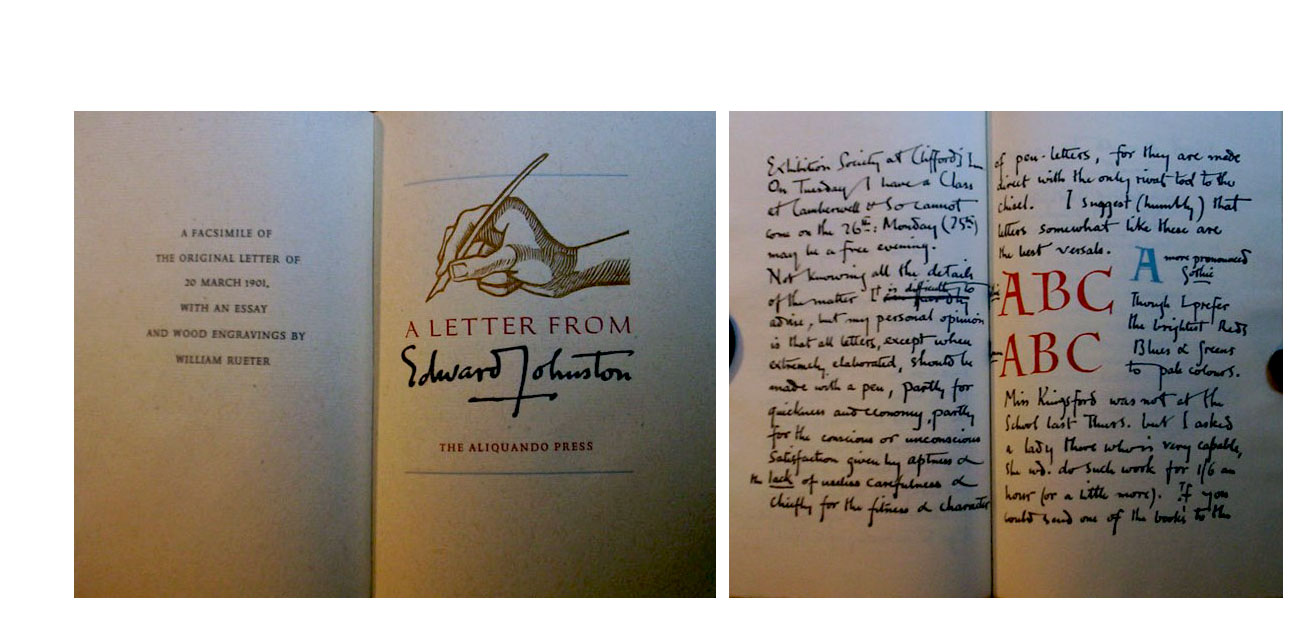 A FACSIMILE OF
THE ORIGINAL LETTER OF
20 MARCH 1901,
WITH AN ESSAY
AND WOOD ENGRAVINGS BY
WILLIAM RUETER
A LETTER FROM
Edward Johnston
THE ALIQUANDO PRESS
Exhibition Society at Clifford's Inn
On Tuesday I have a Class
at Camberwell & so cannot
come on the 26th: Monday (25th)
may be a free evening.
Not knowing all the details
of the matter it is difficult to
advise, but my personal opinion
is that all letters, except when
extremely elaborated, should be
made with a pen, partly for
quickness and economy, partly
for the conscious or unconscious
Satisfaction given by aptness &
the lack of useless carefulness &
chiefly for the fitness & character
of pen-letters, for they are made
direct with the only rival tool to the
chisel. I suggest (humbly) that
letters somewhat like these are
the best versals.
A more pronounced
Gothic
ABC
Though I prefer
the brightest Reds
ABC
Blues & Greens
to pale colours.
Miss Kingsford was not at the
School last Thurs. but I asked
a lady there who is very capable,
She wd. do such work for 1/6 an
hour (or a little more). If you
could send one of the books to the